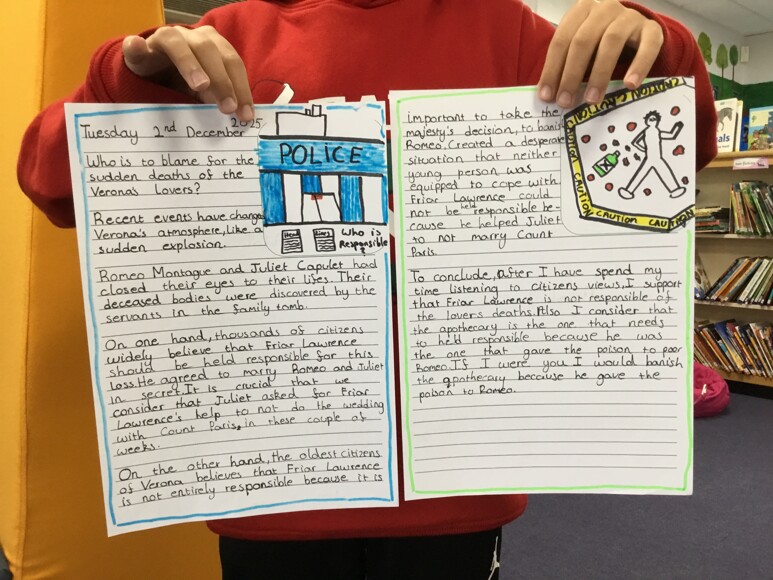 Tuesday 2nd December 2025
Who is to blame for the
sudden deaths of the
Verona's Lovers?
Recent events have changed
Verona's atmosphere, like a
sudden explosion.
Romeo Montague and Juliet Capulet had
closed their eyes to their lifes. Their
deceased bodies were discovered by the
servants in the family tomb.
On one hand, thousands of citizens
widely believe that Friar Lawrence
should be held responsible for this
loss. He agreed to marry Romeo and Juliet
in secret. It is crucial that we
consider that Juliet asked for Friar
Lawrence's help to not do the wedding
with Count Paris, in these couple of
weeks.
On the other hand, the oldest citizens
of Verona believes that Friar Lawrence
is not entirely responsible because it is
POLICE
Who is
Responsible?
important to take the
majesty's decision, to banish
Romeo. Created a desperate
situation that neither
young person was
equipped to cope with.
Friar Lawrence could
not be held responsible be-
cause he helped Juliet
to not marry Count
Paris.
To conclude, after I have spend my
time listening to citizens views, I support
that Friar Lawrence is not responsible of
the lovers deaths. Also I consider that
the apothecary is the one that needs
to held responsible because he was
the one that gave the poison to poor
Romeo. If I were you I would banish
the apothecary because he gave the
poison to Romeo.
CAUTION CAUTION
CAUTION
CAUTION CAUTION